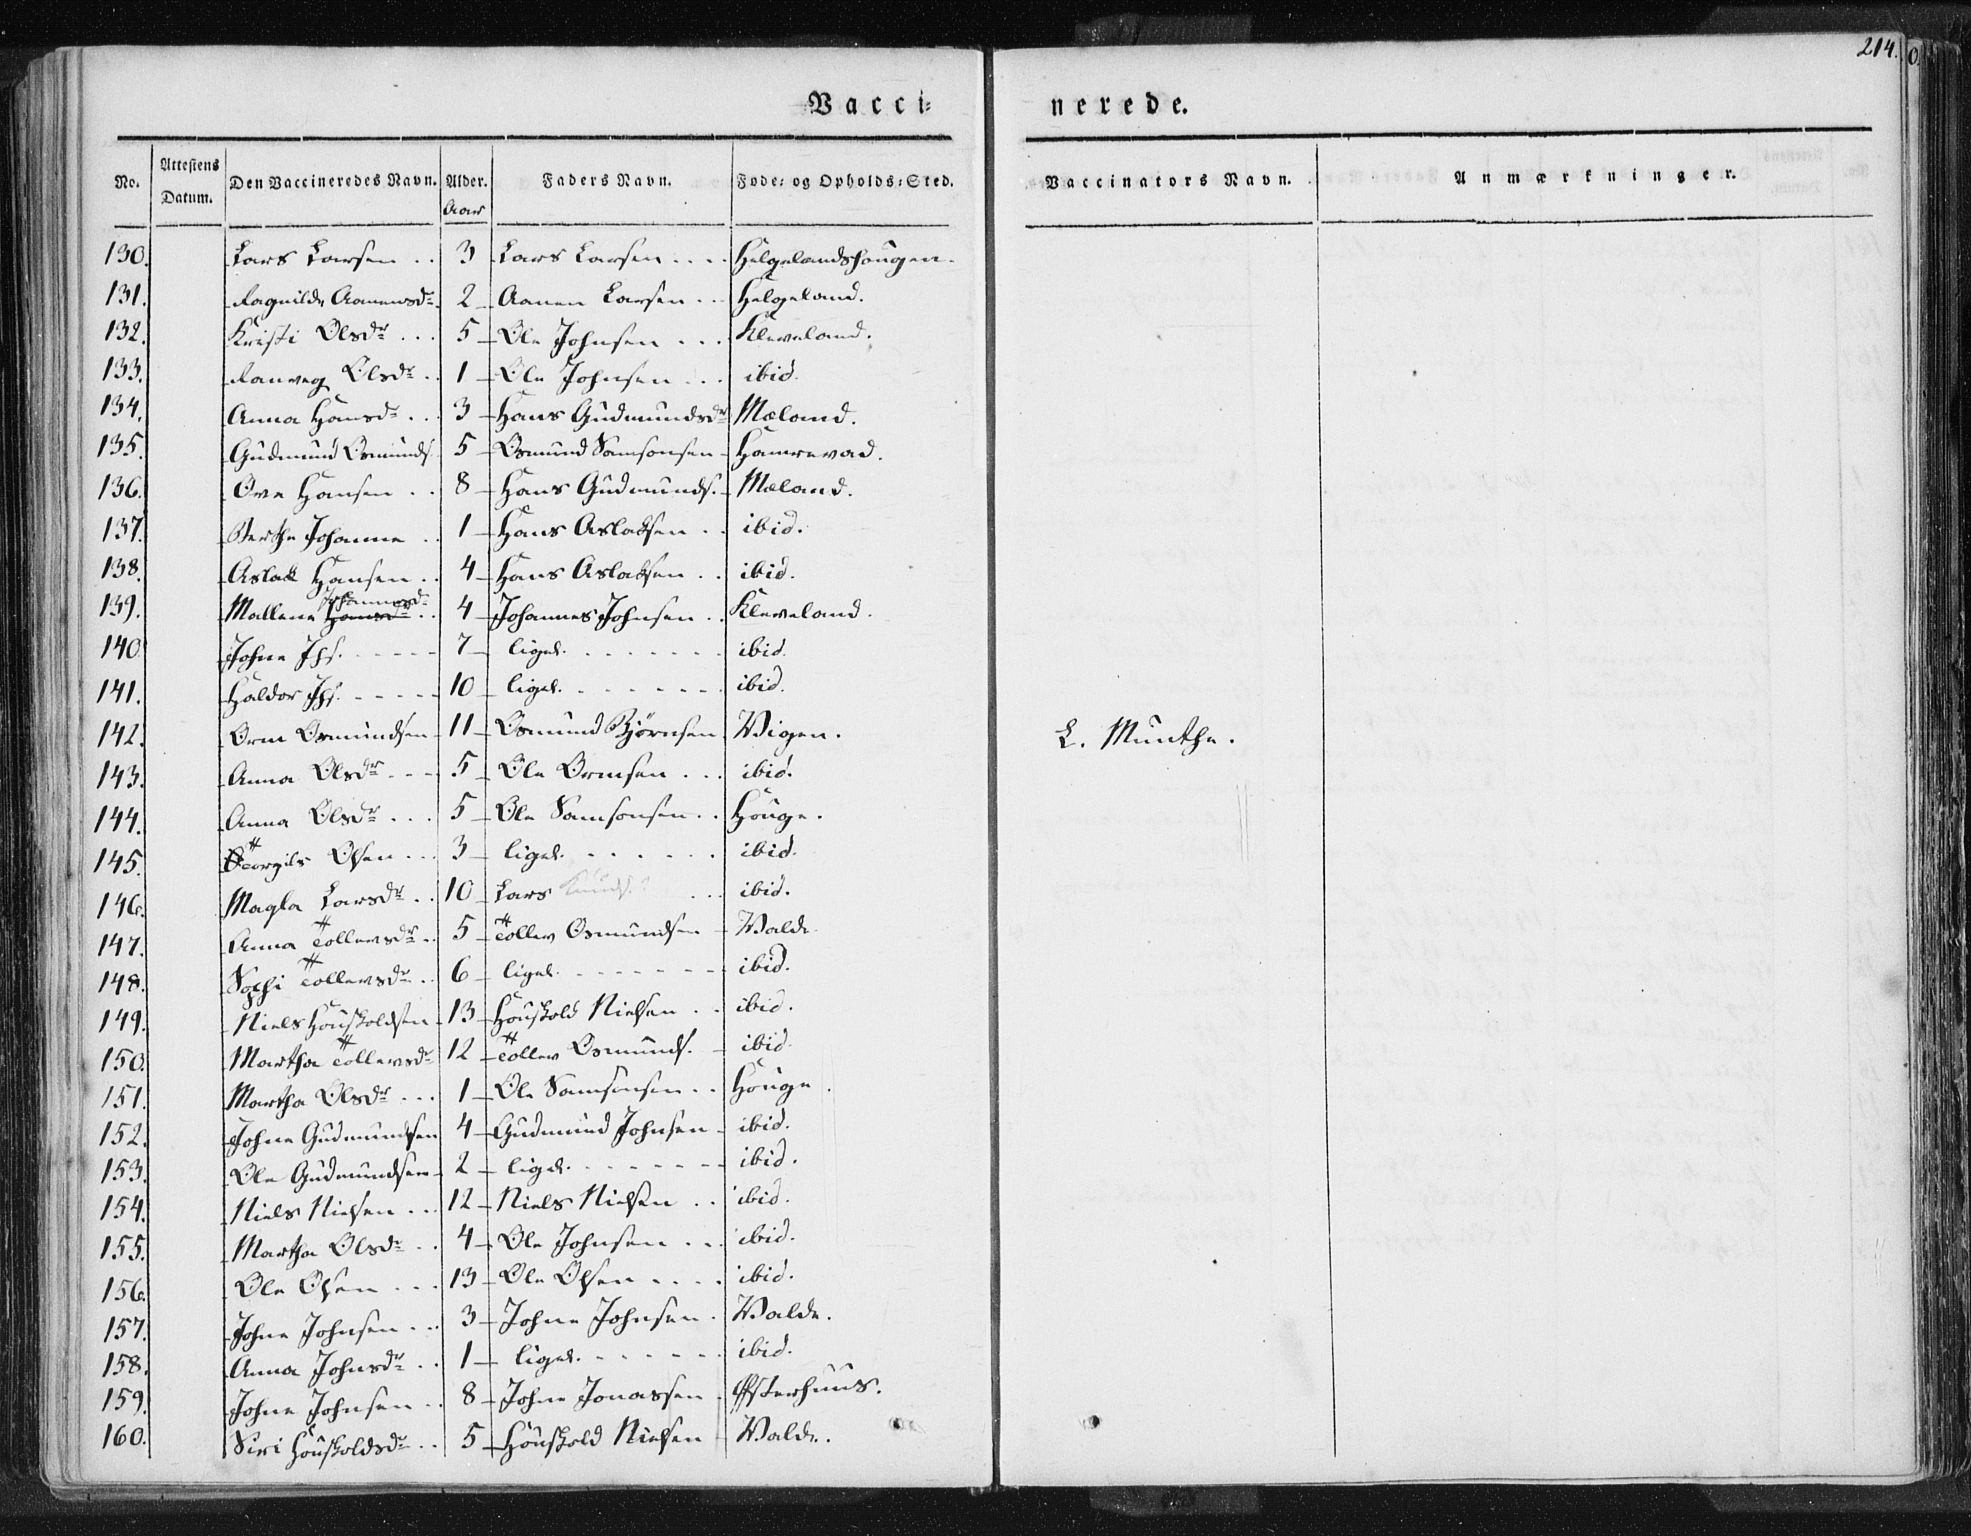 214.
Vacci=
nerede.
No. Attestens Datum. Den Vaccineredes Navn. Alder. Faders Navn. Føde= og Opholds=Sted. Vaccinators Navn. Anmærkninger.
Aar
130. Lars Larsen . . 3 Lars Larsen . . . . Helgelandshougen.
131. Ragnilde Aanensdr 2 Aanen Larsen . . . Helgeland.
132. Kristi Olsdr . . . 5 Ole Johnsen . . . Kleveland.
133. Ranveg Olsdr . . 1 Ole Johnsen . . . ibid.
134. Anna Hansdr . . . 3 Hans Gudmundsdr Mæland.
135. Gudmund Osmunds. 5 Osmund Samsonsen Hamrevad.
136. Ove Hansen . . 8 Hans Gudmunds. Mæland.
137. Berthe Johanne . . 1 Hans Aslaksen . . ibid.
138. Aslak Hansen . . 4 Hans Aslaksen . . ibid.
139. Mallene Johannesdr . . 4 Johannes Johnsen . . Kleveland.
140. Johne Jhs. - - - - - 7 liges. . . . . . . . ibid.
141. Haldor Jhs. - - - - - 10 liges. . . . . . . . ibid.
142. Orm Osmundsen 11 Osmund Bjørnsen Wigen. L. Munthe.
143. Anna Olsdr - - - 5 Ole Ormsen . . . ibid.
144. Anna Olsdr . . . 5 Ole Samsonsen . . Houge.
145. Torgils Olsen . . . 3 liges. . . . . . . ibid.
146. Magla Larsdr . . 10 Lars Knuds.? . . . ibid.
147. Anna Tollevsdr . . 5 Tollev Osmundsen Walde.
148. Sophi Tollevsdr . . 6 liges. - - - - - - - ibid.
149. Niels Houskoldsen 13 Houskold Nielsen . . ibid.
150. Martha Tollevsdr 12 Tollev Osmunds. ibid.
151. Martha Olsdr . . . 1 Ole Samsonsen . . Houge.
152. Johne Gudmundsen 4 Gudmund Johnsen ibid.
153. Ole Gudmundsen 2 liges. - - - - - - - ibid.
154. Niels Nielsen . . . 12 Niels Nielsen . . ibid.
155. Martha Olsdr . . 4 Ole Johnsen . . . ibid.
156. Ole Olsen . . . 13 Ole Olsen . . . . ibid.
157. Johne Johnsen . . . 3 Johne Johnsen . Walde.
158. Anna Johnsdr . . 1 liges. - - - - - - ibid.
159. Johne Johnsen . . 8 Johne Jonassen . Østerhuus.
160. Siri Houskoldsdr . . 5 Houskold Nielsen Walde.